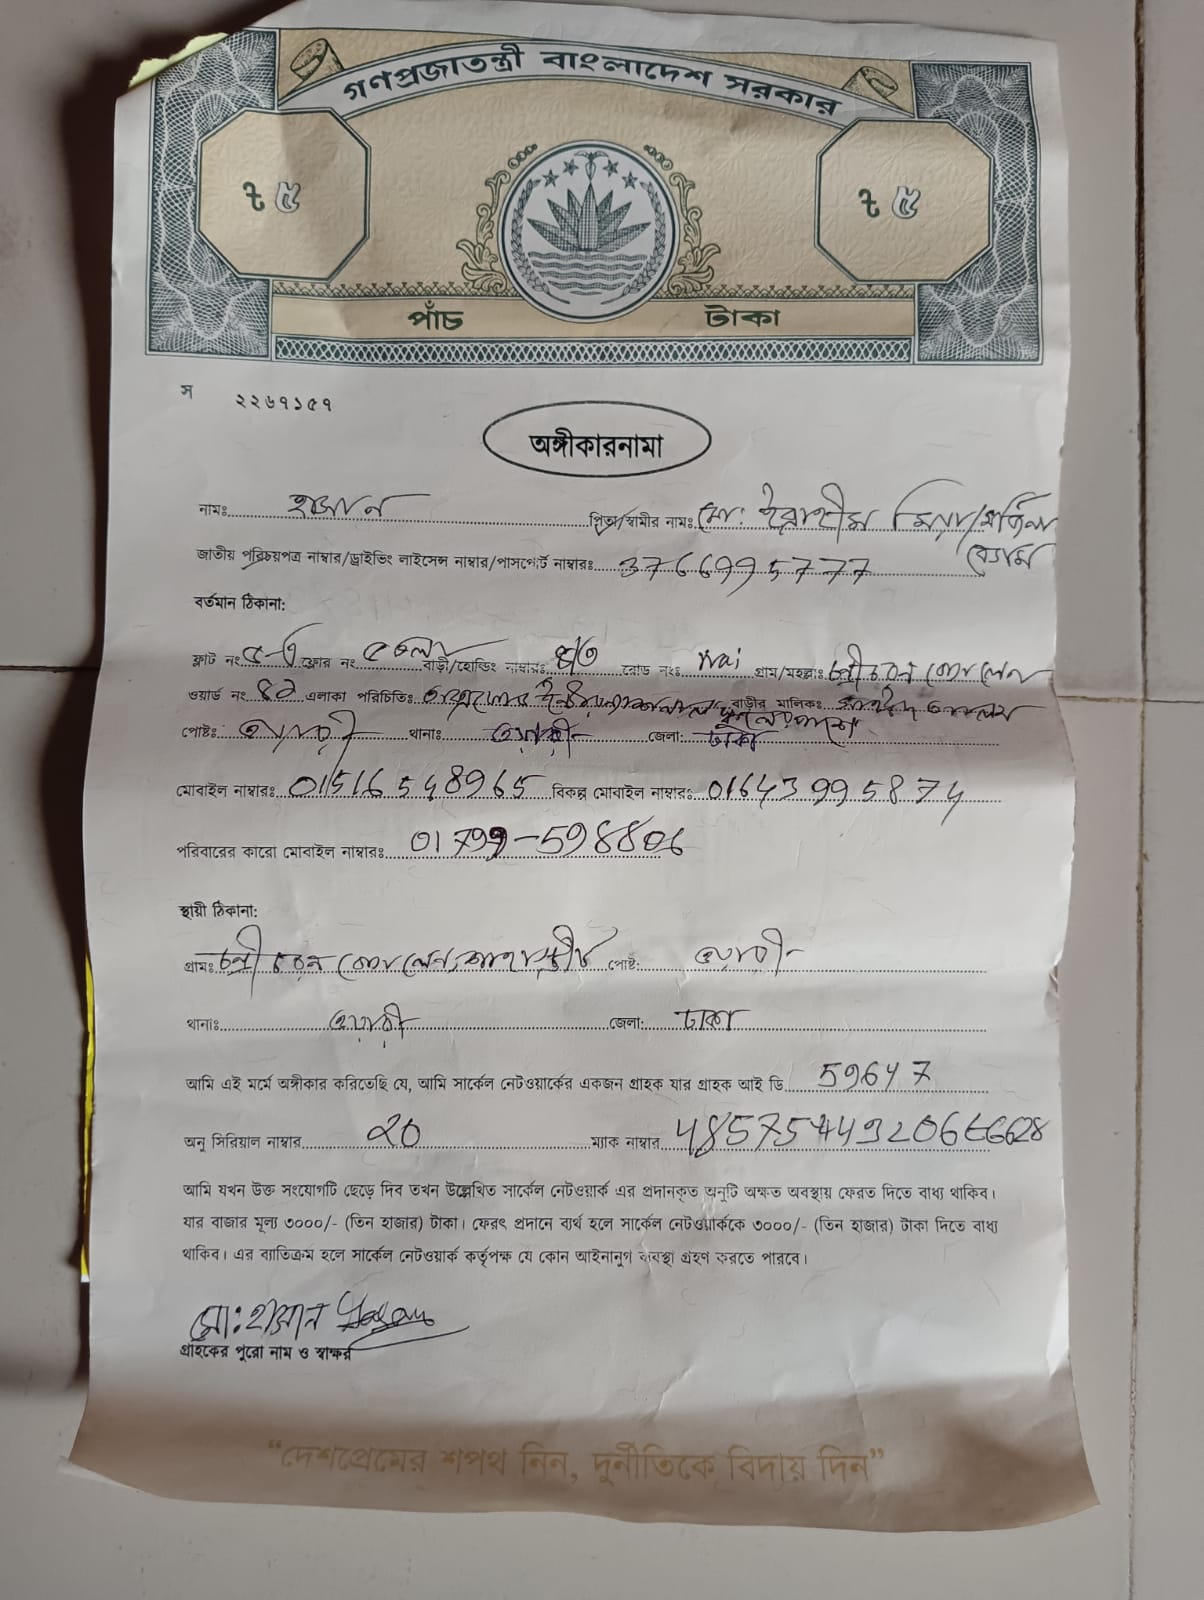 গণপ্রজাতন্ত্রী বাংলাদেশ সরকার
৳ ৫ ৳ ৫
পাঁচ টাকা
স ২২৬৭১৫৭
অঙ্গীকারনামা
নামঃ হাসান পিতা/স্বামীর নামঃ মো: ইব্রাহীম মিয়া/মর্জিনা
বেগম
জাতীয় পরিচয়পত্র নাম্বার/ড্রাইভিং লাইসেন্স নাম্বার/পাসপোর্ট নাম্বারঃ 3766995777
বর্তমান ঠিকানা:
ফ্লাট নং ফ্লোর নং ৫ তলা বাড়ী/হোল্ডিং নাম্বারঃ রোড নংঃ গ্রাম/মহল্লাঃ
ওয়ার্ড নং এলাকা পরিচিতিঃ বাড়ীর মালিকঃ
পোষ্টঃ ওয়ারী থানাঃ ওয়ারী জেলা: ঢাকা
মোবাইল নাম্বারঃ 01516548965 বিকল্প মোবাইল নাম্বারঃ 01643995874
পরিবারের কারো মোবাইল নাম্বারঃ 01799-598806
স্থায়ী ঠিকানা:
গ্রামঃ পোষ্ট: ওয়ারী
থানাঃ ওয়ারী জেলা: ঢাকা
আমি এই মর্মে অঙ্গীকার করিতেছি যে, আমি সার্কেল নেটওয়ার্কের একজন গ্রাহক যার গ্রাহক আই ডি 59647
অনু সিরিয়াল নাম্বার ২০ ম্যাক নাম্বার
আমি যখন উক্ত সংযোগটি ছেড়ে দিব তখন উল্লেখিত সার্কেল নেটওয়ার্ক এর প্রদানকৃত অনুটি অক্ষত অবস্থায় ফেরত দিতে বাধ্য থাকিব।
যার বাজার মূল্য ৩০০০/- (তিন হাজার) টাকা। ফেরৎ প্রদানে ব্যর্থ হলে সার্কেল নেটওয়ার্ককে ৩০০০/- (তিন হাজার) টাকা দিতে বাধ্য
থাকিব। এর ব্যাতিক্রম হলে সার্কেল নেটওয়ার্ক কর্তৃপক্ষ যে কোন আইনানুগ ব্যবস্থা গ্রহণ করতে পারবে।
মো: হাসান
গ্রাহকের পুরো নাম ও স্বাক্ষর
“দেশপ্রেমের শপথ নিন, দুর্নীতিকে বিদায় দিন”